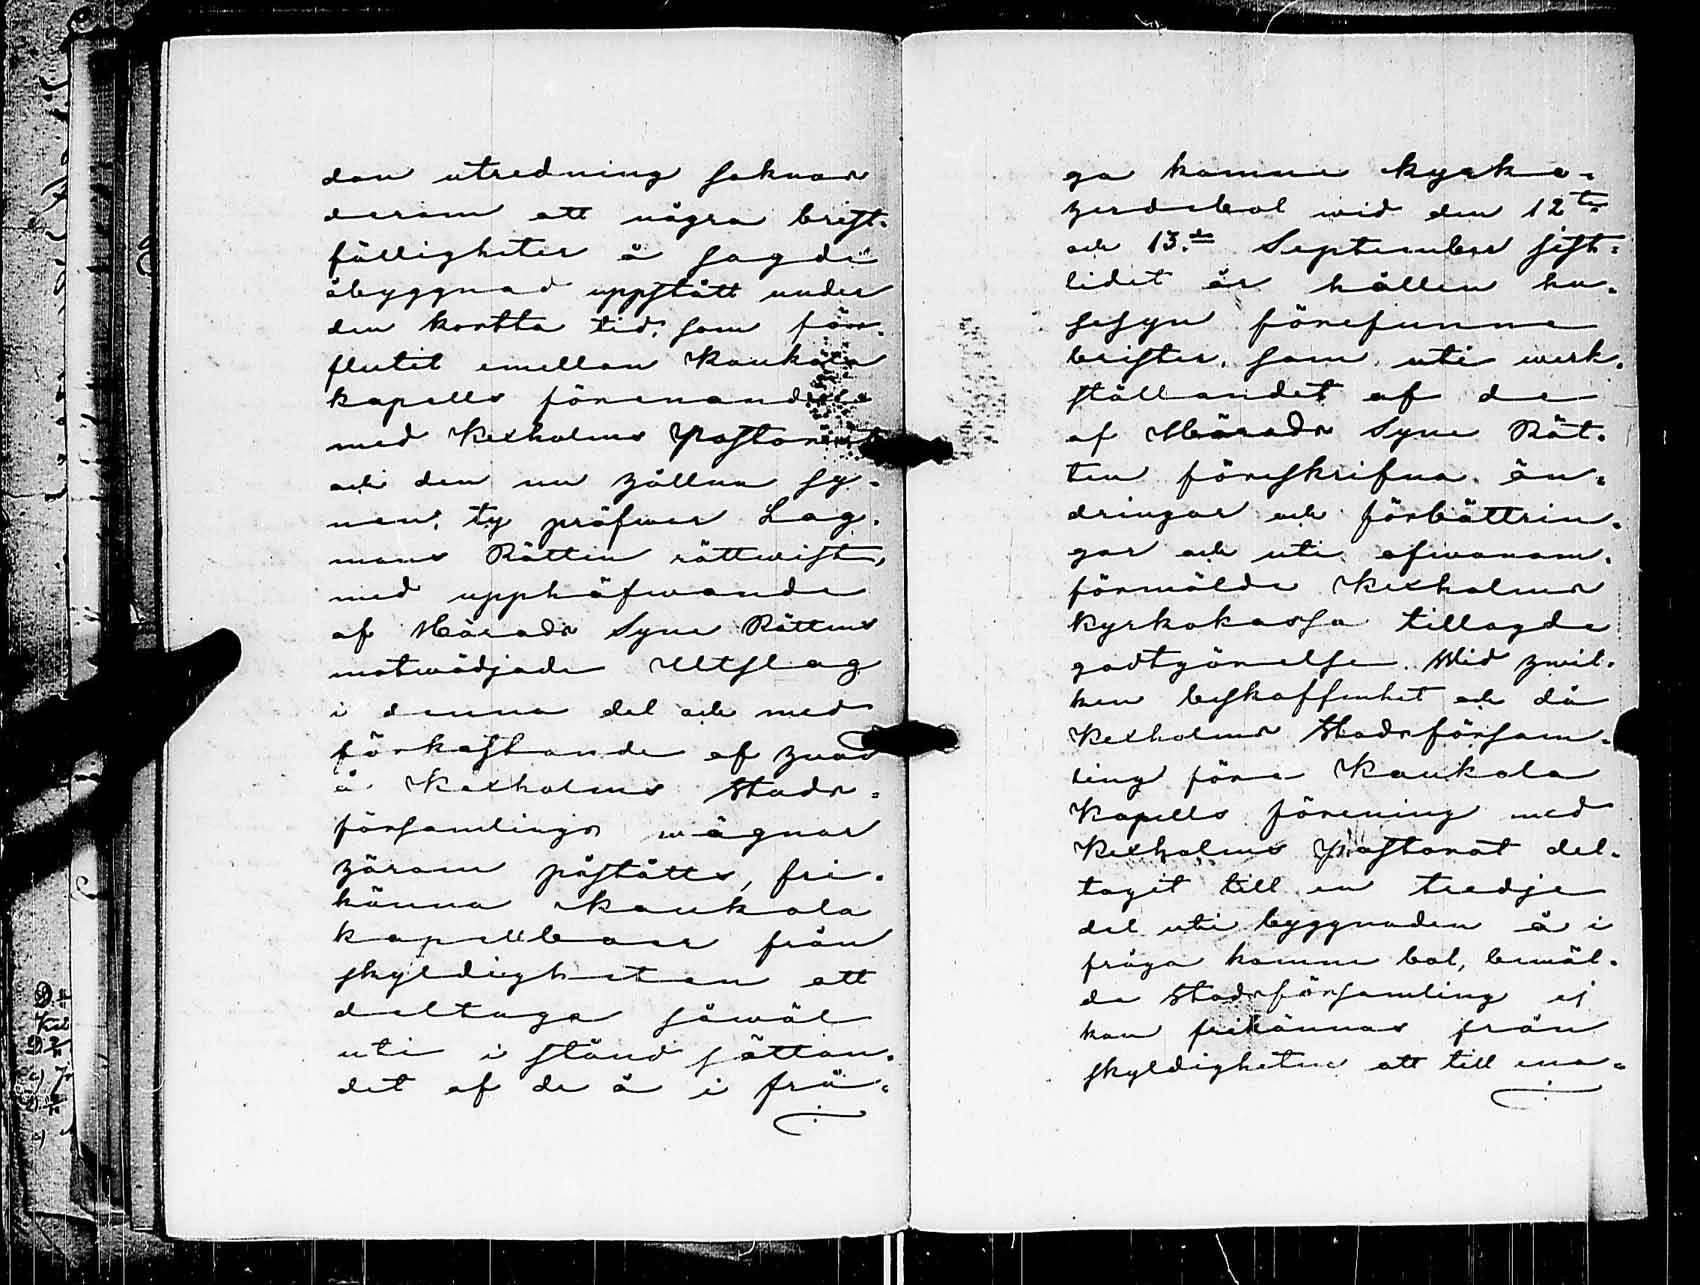 dan utredning saknas
derom att några brist-
fälligheter å sagde
åbyggnad uppstått under
den kortta tid, som för-
flutit emellan Kaukola
kapells förenande
med Kexholms Pastorat
och den nu hållna sy-
nen; ty pröfwar Lag-
mans Rätten rättwist,
med upphäfwande
af Härads Syne Rättens
motwädjade Utslag
i denna del och med
förkastande af hwad
å Kexholms Stads-
församlings wägnar
härom påståtts, fri-
känna Kaukola
kapellboer från
skyldigheten att
deltaga såwäl
uti i stånd sättan-
det af de å i frå-
ga komne kyrko-
herdebol wid den 12te
och 13de September sist-
lidet år hållen hu-
sesyn förefunne
brister, som uti werk-
ställandet af de
af Härads Syne Rät-
ten föreskrifna än-
dringar och förbättrin-
gar och uti ofwanom-
förmälde Kexholms
Kyrkokassa tillagde
godtgörelse. Wid hwil-
ken beskaffenhet och då
Kexholms Stadsförsam-
ling före Kaukola
Kapells förening med
Kexholms Pastorat del-
tagit till en tredje
del uti byggnaden å i
fråga komne bol, bemäl-
de Stadsförsamling ej
kan frikännas från
skyldigheten att till ena-